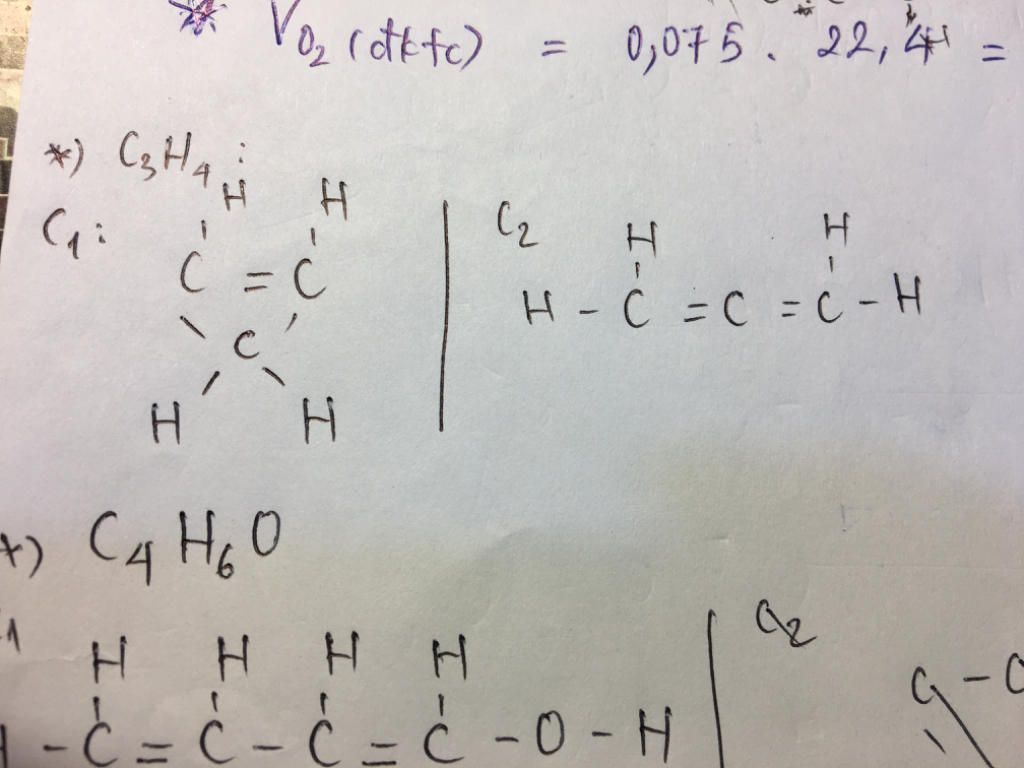 * V O₂ (đktc) = 0,075 . 22,4 =
*) C₃H₄ :
C₁ :
H H
C = C
C
H H
C₂
H H
H - C = C = C - H
*) C₄H₆O
1
H H H H
H - C = C - C = C - O - H
C₂
C - C